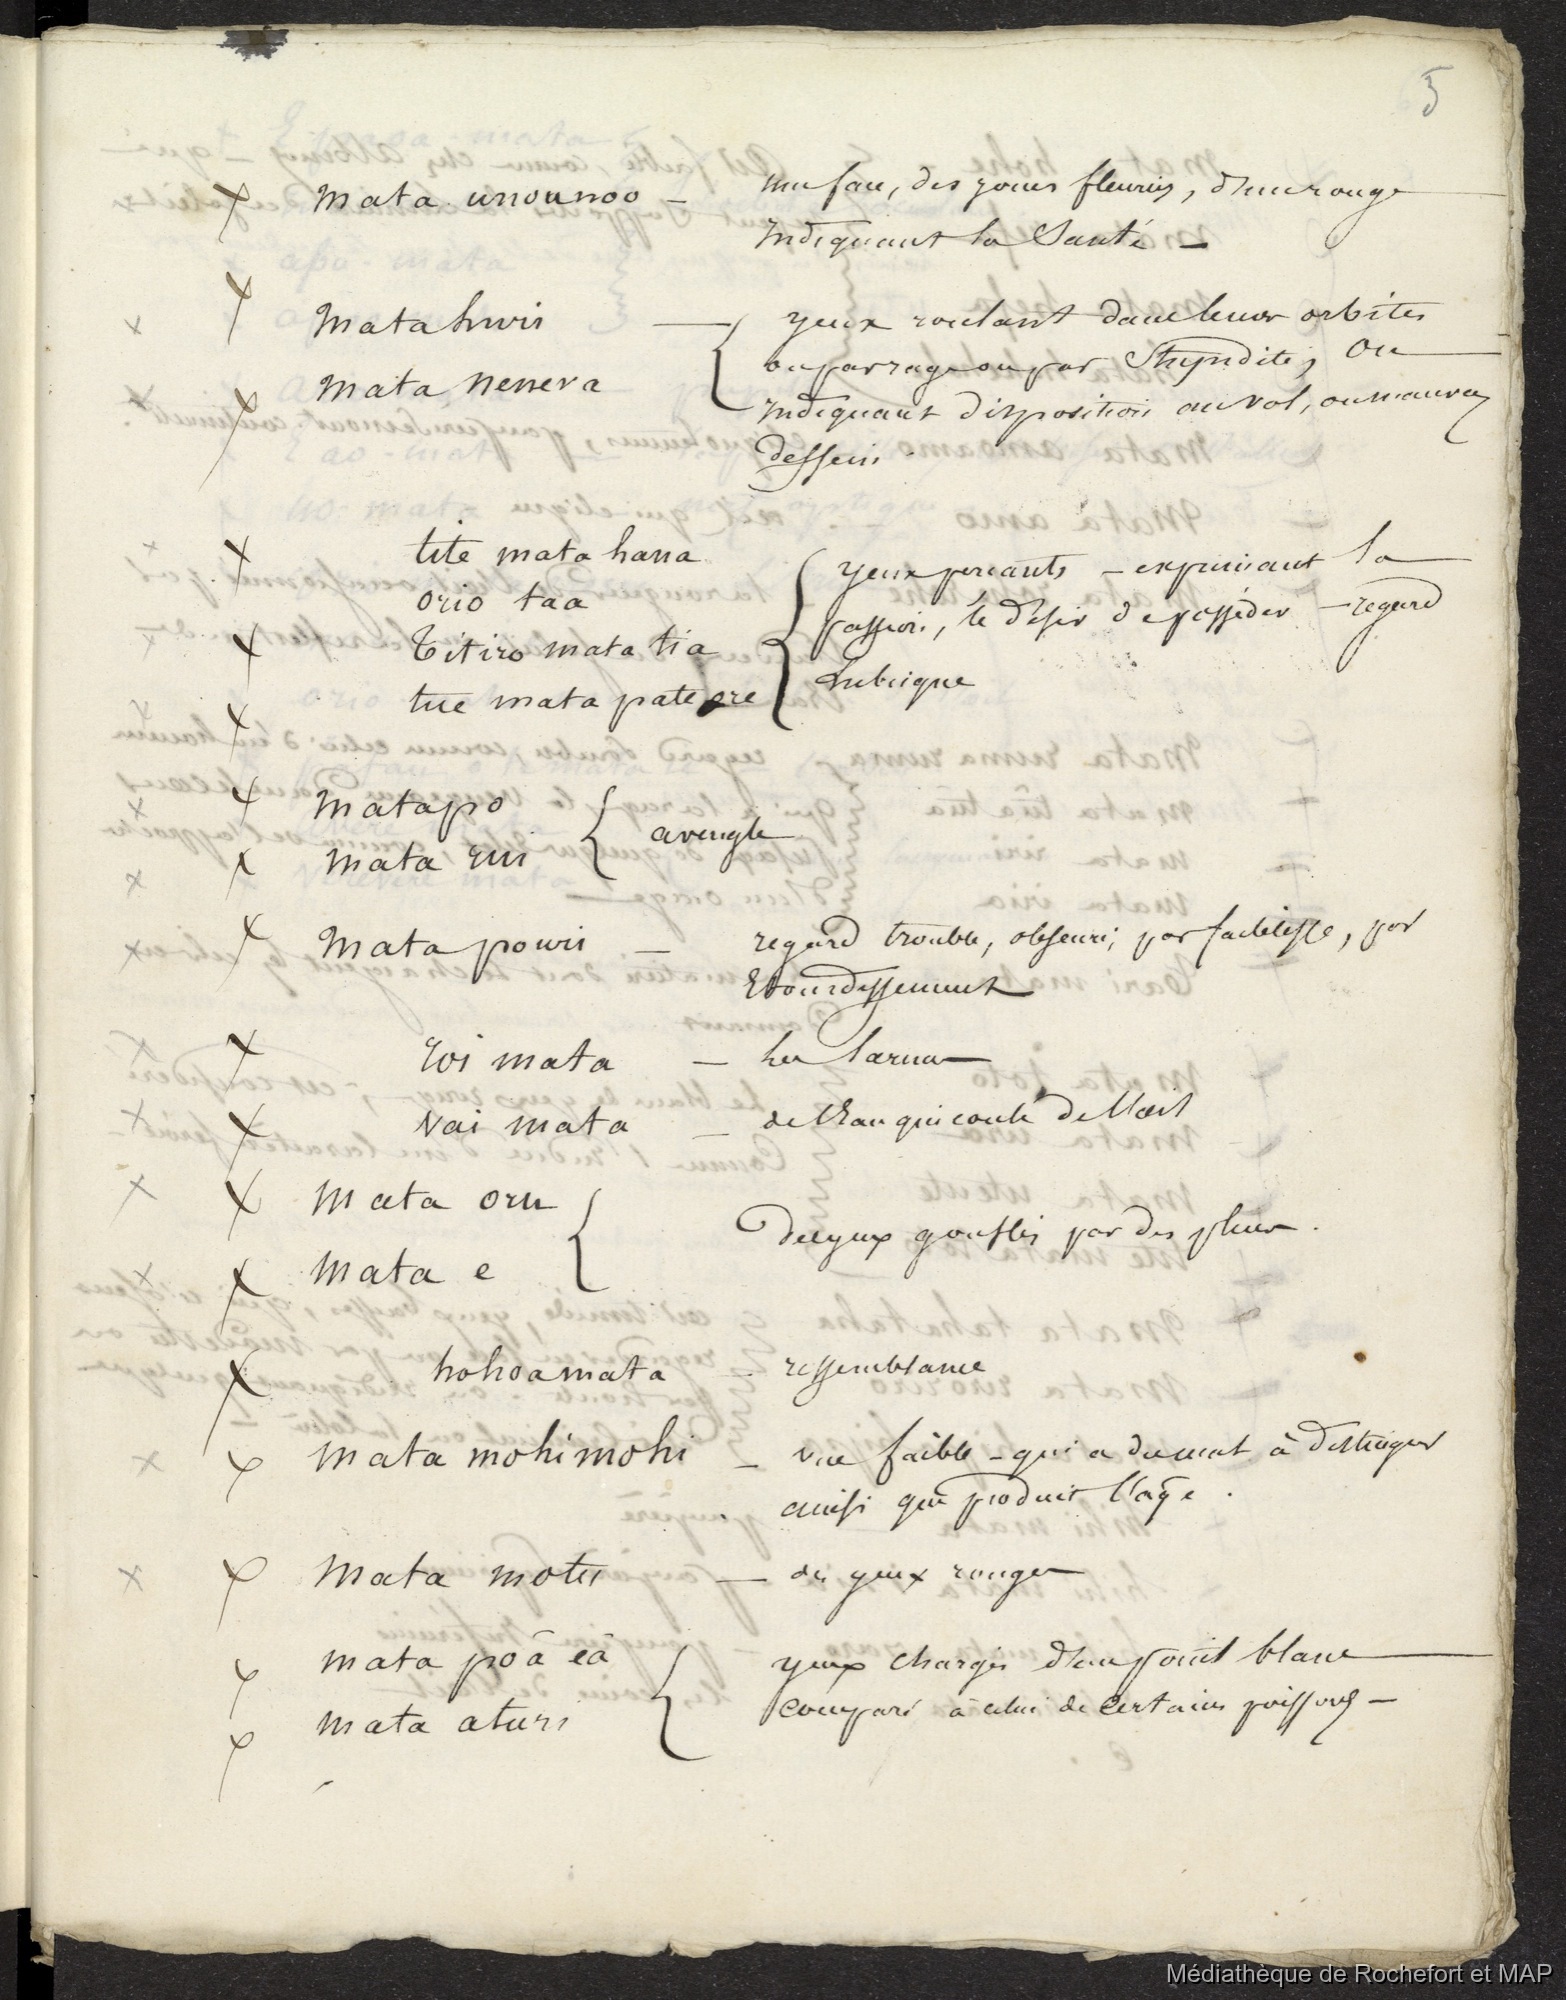 5
x mata unounoo - une face, des joues fleuries, d'une rouge
indiquant la santé -
x mata huris — { yeux roulant dans leurs orbites
ou par rage ou par stupidité, ou
x mata nenera indiquant disposition au vol, ou mauvais
dessein.
x tite mata hana { yeux perçants - exprimant la
orio taa passion, le désir de posséder - regard
x titiro mata tia lubrique
x tue mata pate ere
x matapo { aveugle
x mata rui
x mata pouri — regard trouble, obscurci, par faiblesse, par
Etourdissement
x roi mata — les larmes
x vai mata — de l'eau qui coule de l'œil
x mata oru { des yeux gonflés par des pleurs.
x mata e
x hohoa mata - ressemblance
x mata mohimohi - vue faible - qui a du mal à distinguer
ainsi que produit l'âge.
x mata motu — des yeux rouges
x mata poâ eâ { yeux chargés d'un point blanc
x mata aturi comparé à celui de certains poissons -
Médiathèque de Rochefort et MAP